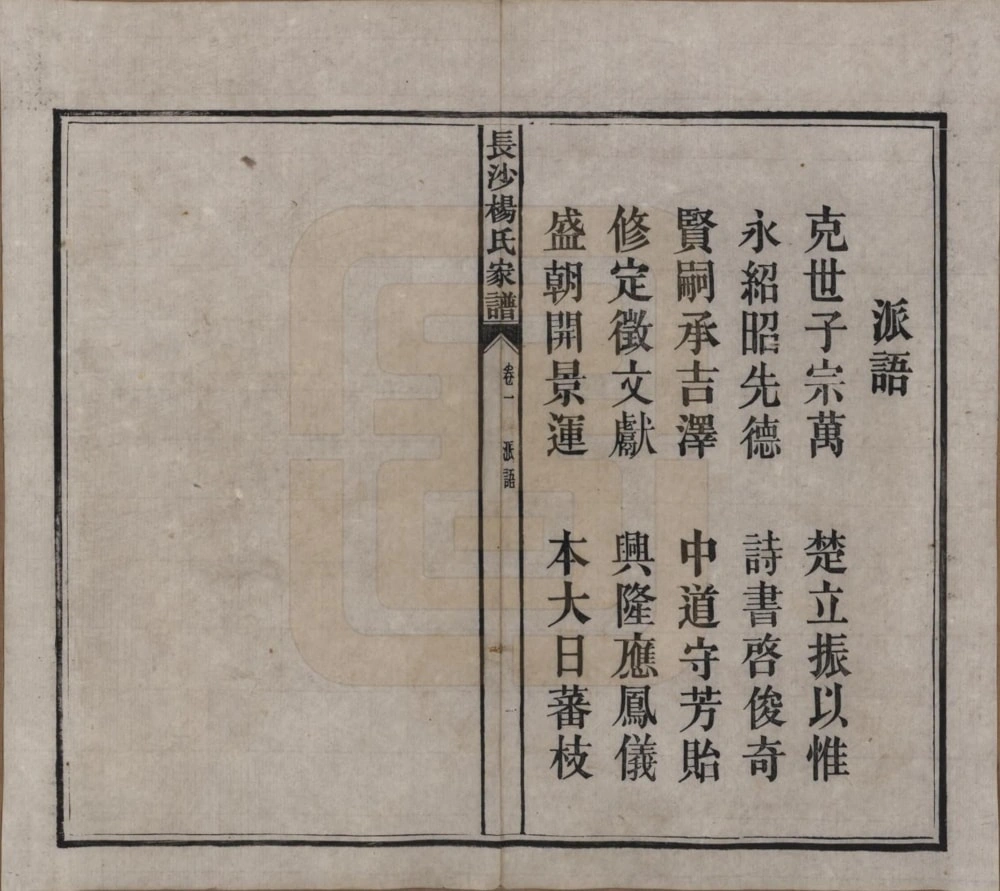 派語
克世子宗萬　楚立振以惟
永紹昭先德　詩書啓俊奇
賢嗣承吉澤　中道守芳貽
修定徵文獻　興隆應鳳儀
盛朝開景運　本大日蕃枝
長沙楊氏家譜　卷一　派語　一